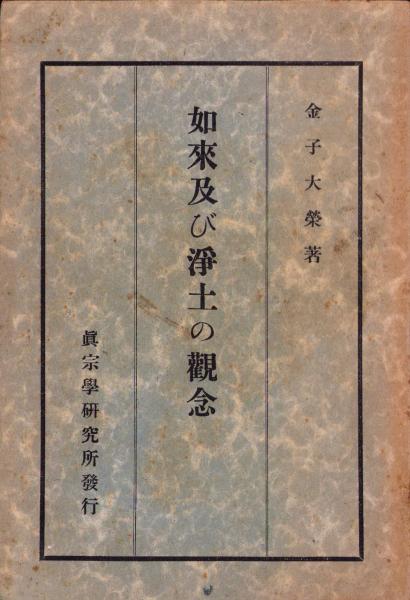 金子大榮著
如來及び淨土の觀念
眞宗學硏究所發行